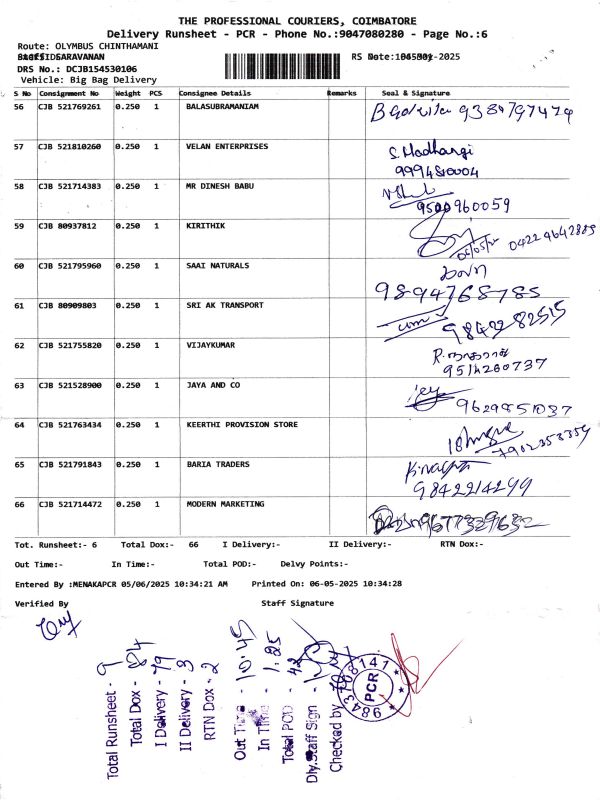 THE PROFESSIONAL COURIERS, COIMBATORE
Delivery Runsheet - PCR - Phone No.:9047080280 - Page No.:6
Route: OLYMBUS CHINTHAMANI
SARAVANAN
RS No
2025
DRS No.: DCJB154530106
Vehicle: Big Bag Delivery
S No Consignment No Weight PCS Consignee Details Remarks Seal & Signature
56 CJB 521769261 0.250 1 BALASUBRAMANIAM
57 CJB 521810260 0.250 1 VELAN ENTERPRISES S. Madhangi
9994510004
58 CJB 521714383 0.250 1 MR DINESH BABU
9500960059
59 CJB 80937812 0.250 1 KIRITHIK
0422 4642885
60 CJB 521795960 0.250 1 SAAI NATURALS
9894768785
61 CJB 80909803 0.250 1 SRI AK TRANSPORT
9842282515
62 CJB 521755820 0.250 1 VIJAYKUMAR
9514260737
63 CJB 521528900 0.250 1 JAYA AND CO
9629851037
64 CJB 521763434 0.250 1 KEERTHI PROVISION STORE
7902358359
65 CJB 521791843 0.250 1 BARIA TRADERS
9842214299
66 CJB 521714472 0.250 1 MODERN MARKETING
9677329632
Tot. Runsheet:- 6 Total Dox:- 66 I Delivery:- II Delivery:- RTN Dox:-
Out Time:- In Time:- Total POD:- Delvy Points:-
Entered By :MENAKAPCR 05/06/2025 10:34:21 AM Printed On: 06-05-2025 10:34:28
Verified By Staff Signature
Total Runsheet - 9
Total Dox - 84
I Delivery - 79
II Delivery - 3
RTN Dox - 2
Out Time - 10.45
In Time - 1.25
Total POD - 42
Dly.Staff Sign -
Checked by
PCR
9843108141